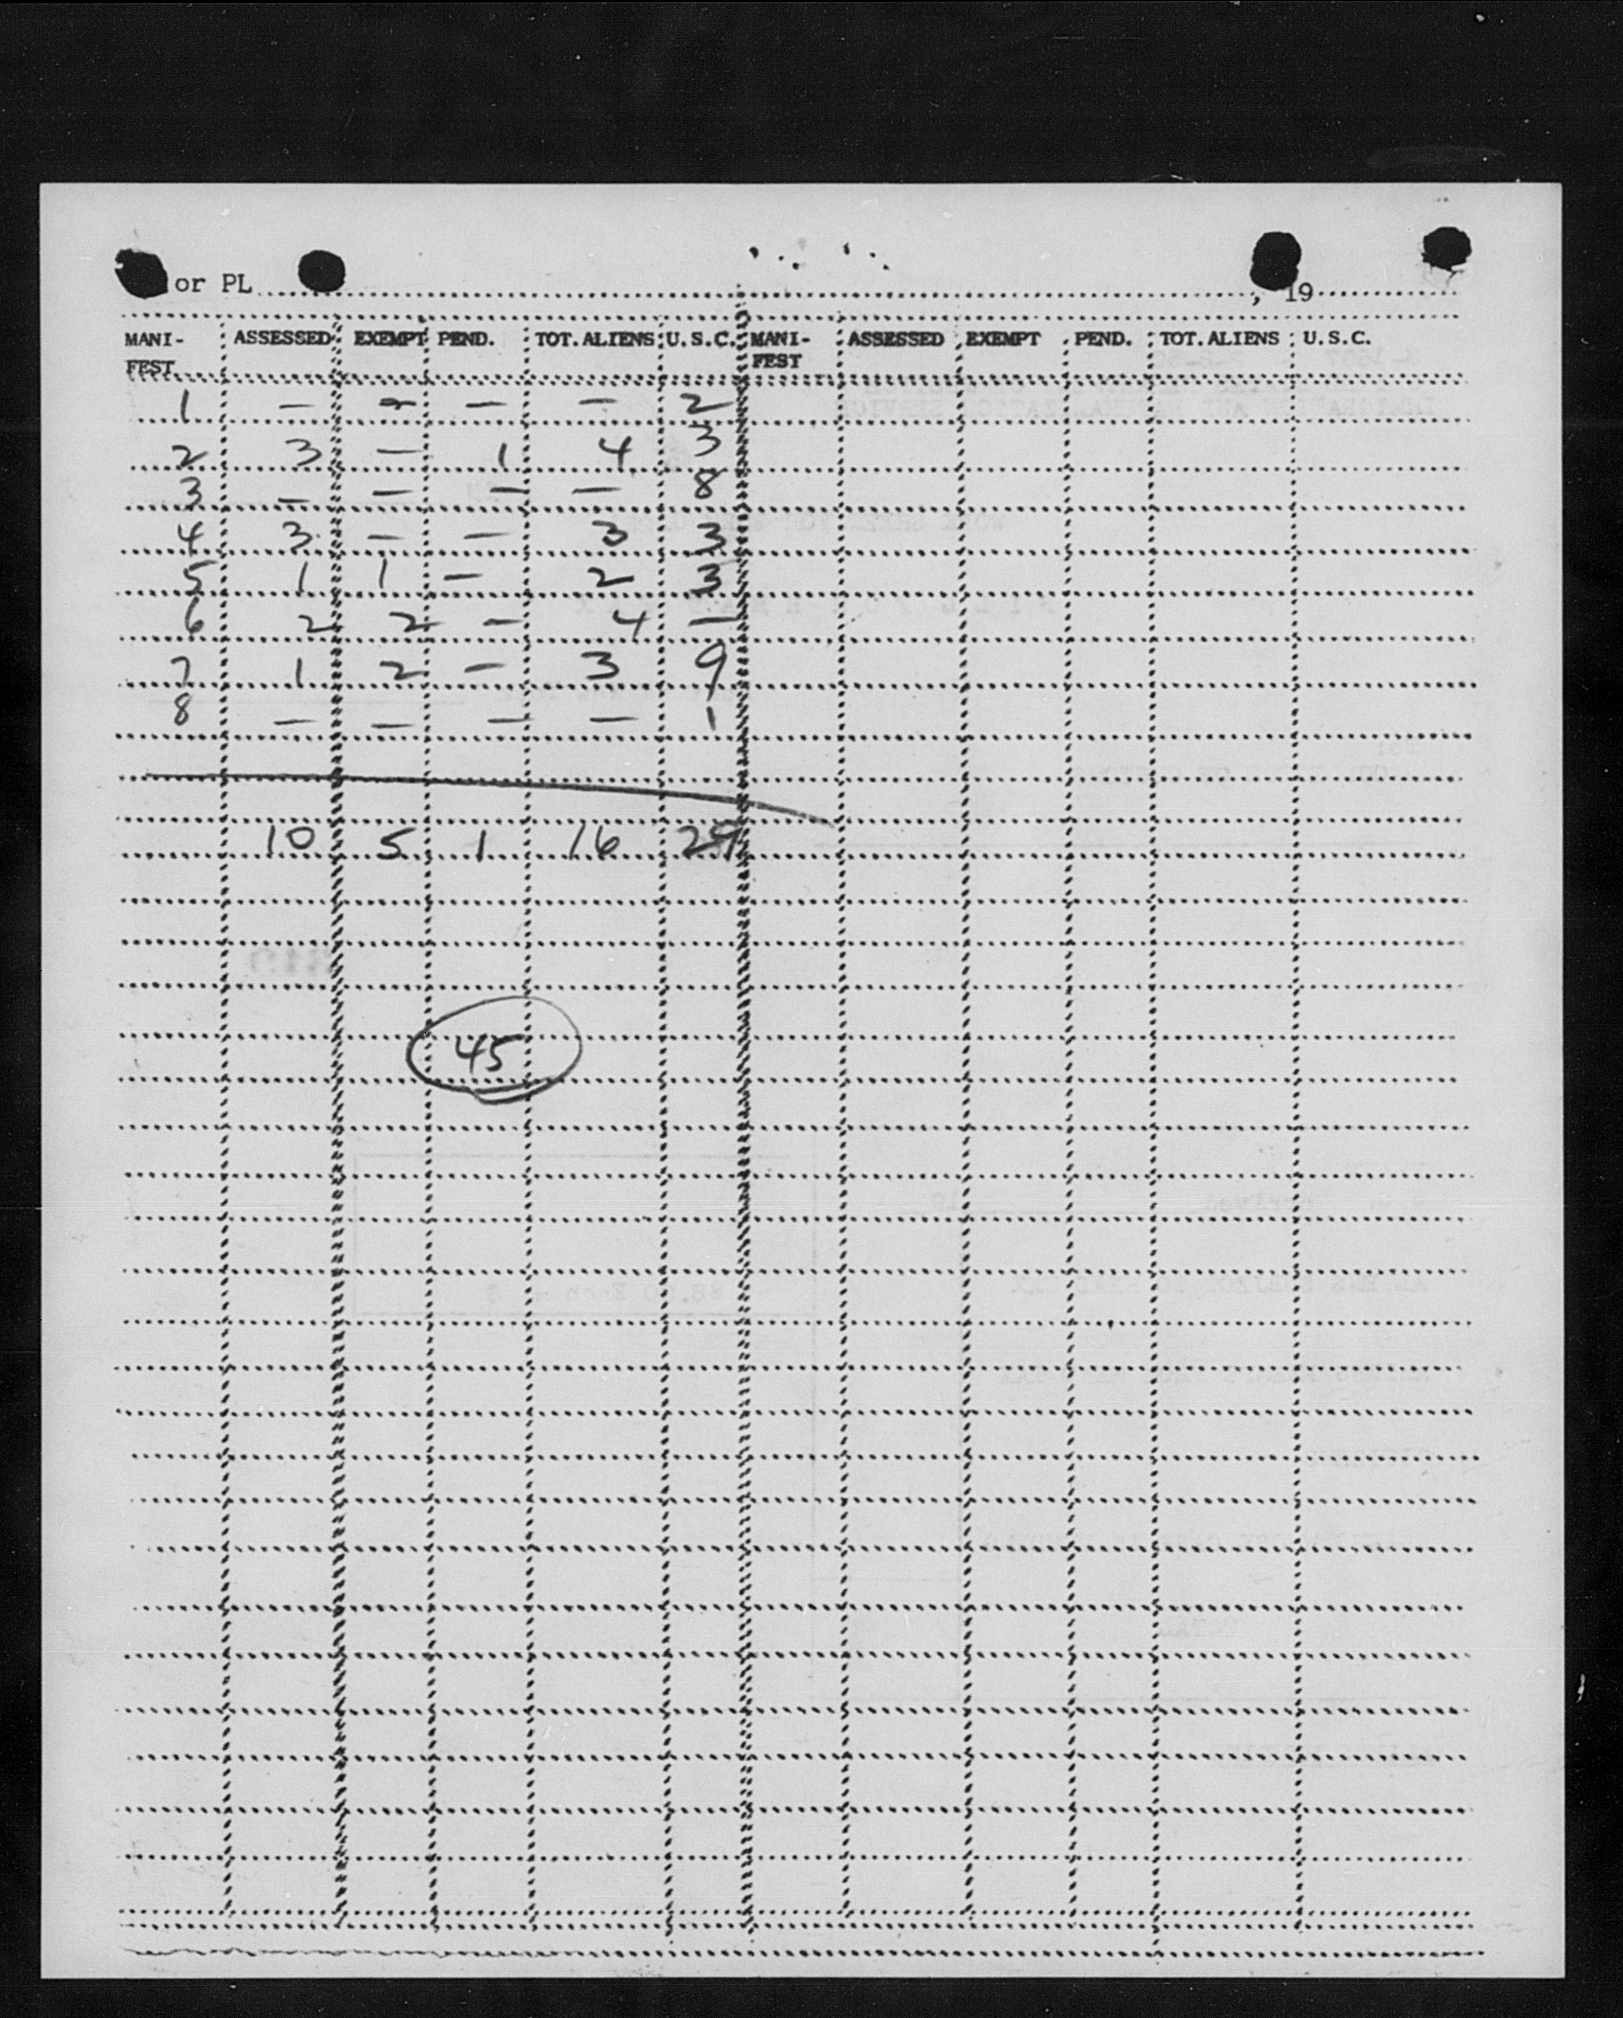 or PL , 19
MANI- ASSESSED EXEMPT PEND. TOT. ALIENS U.S.C. MANI- ASSESSED EXEMPT PEND. TOT. ALIENS U.S.C.
FEST FEST
1 — — — — 2
2 3 — 1 4 3
3 — — — — 8
4 3 — — 3 3
5 1 1 — 2 3
6 2 2 — 4 —
7 1 2 — 3 9
8 — — — — 1
10 5 1 16 29
45